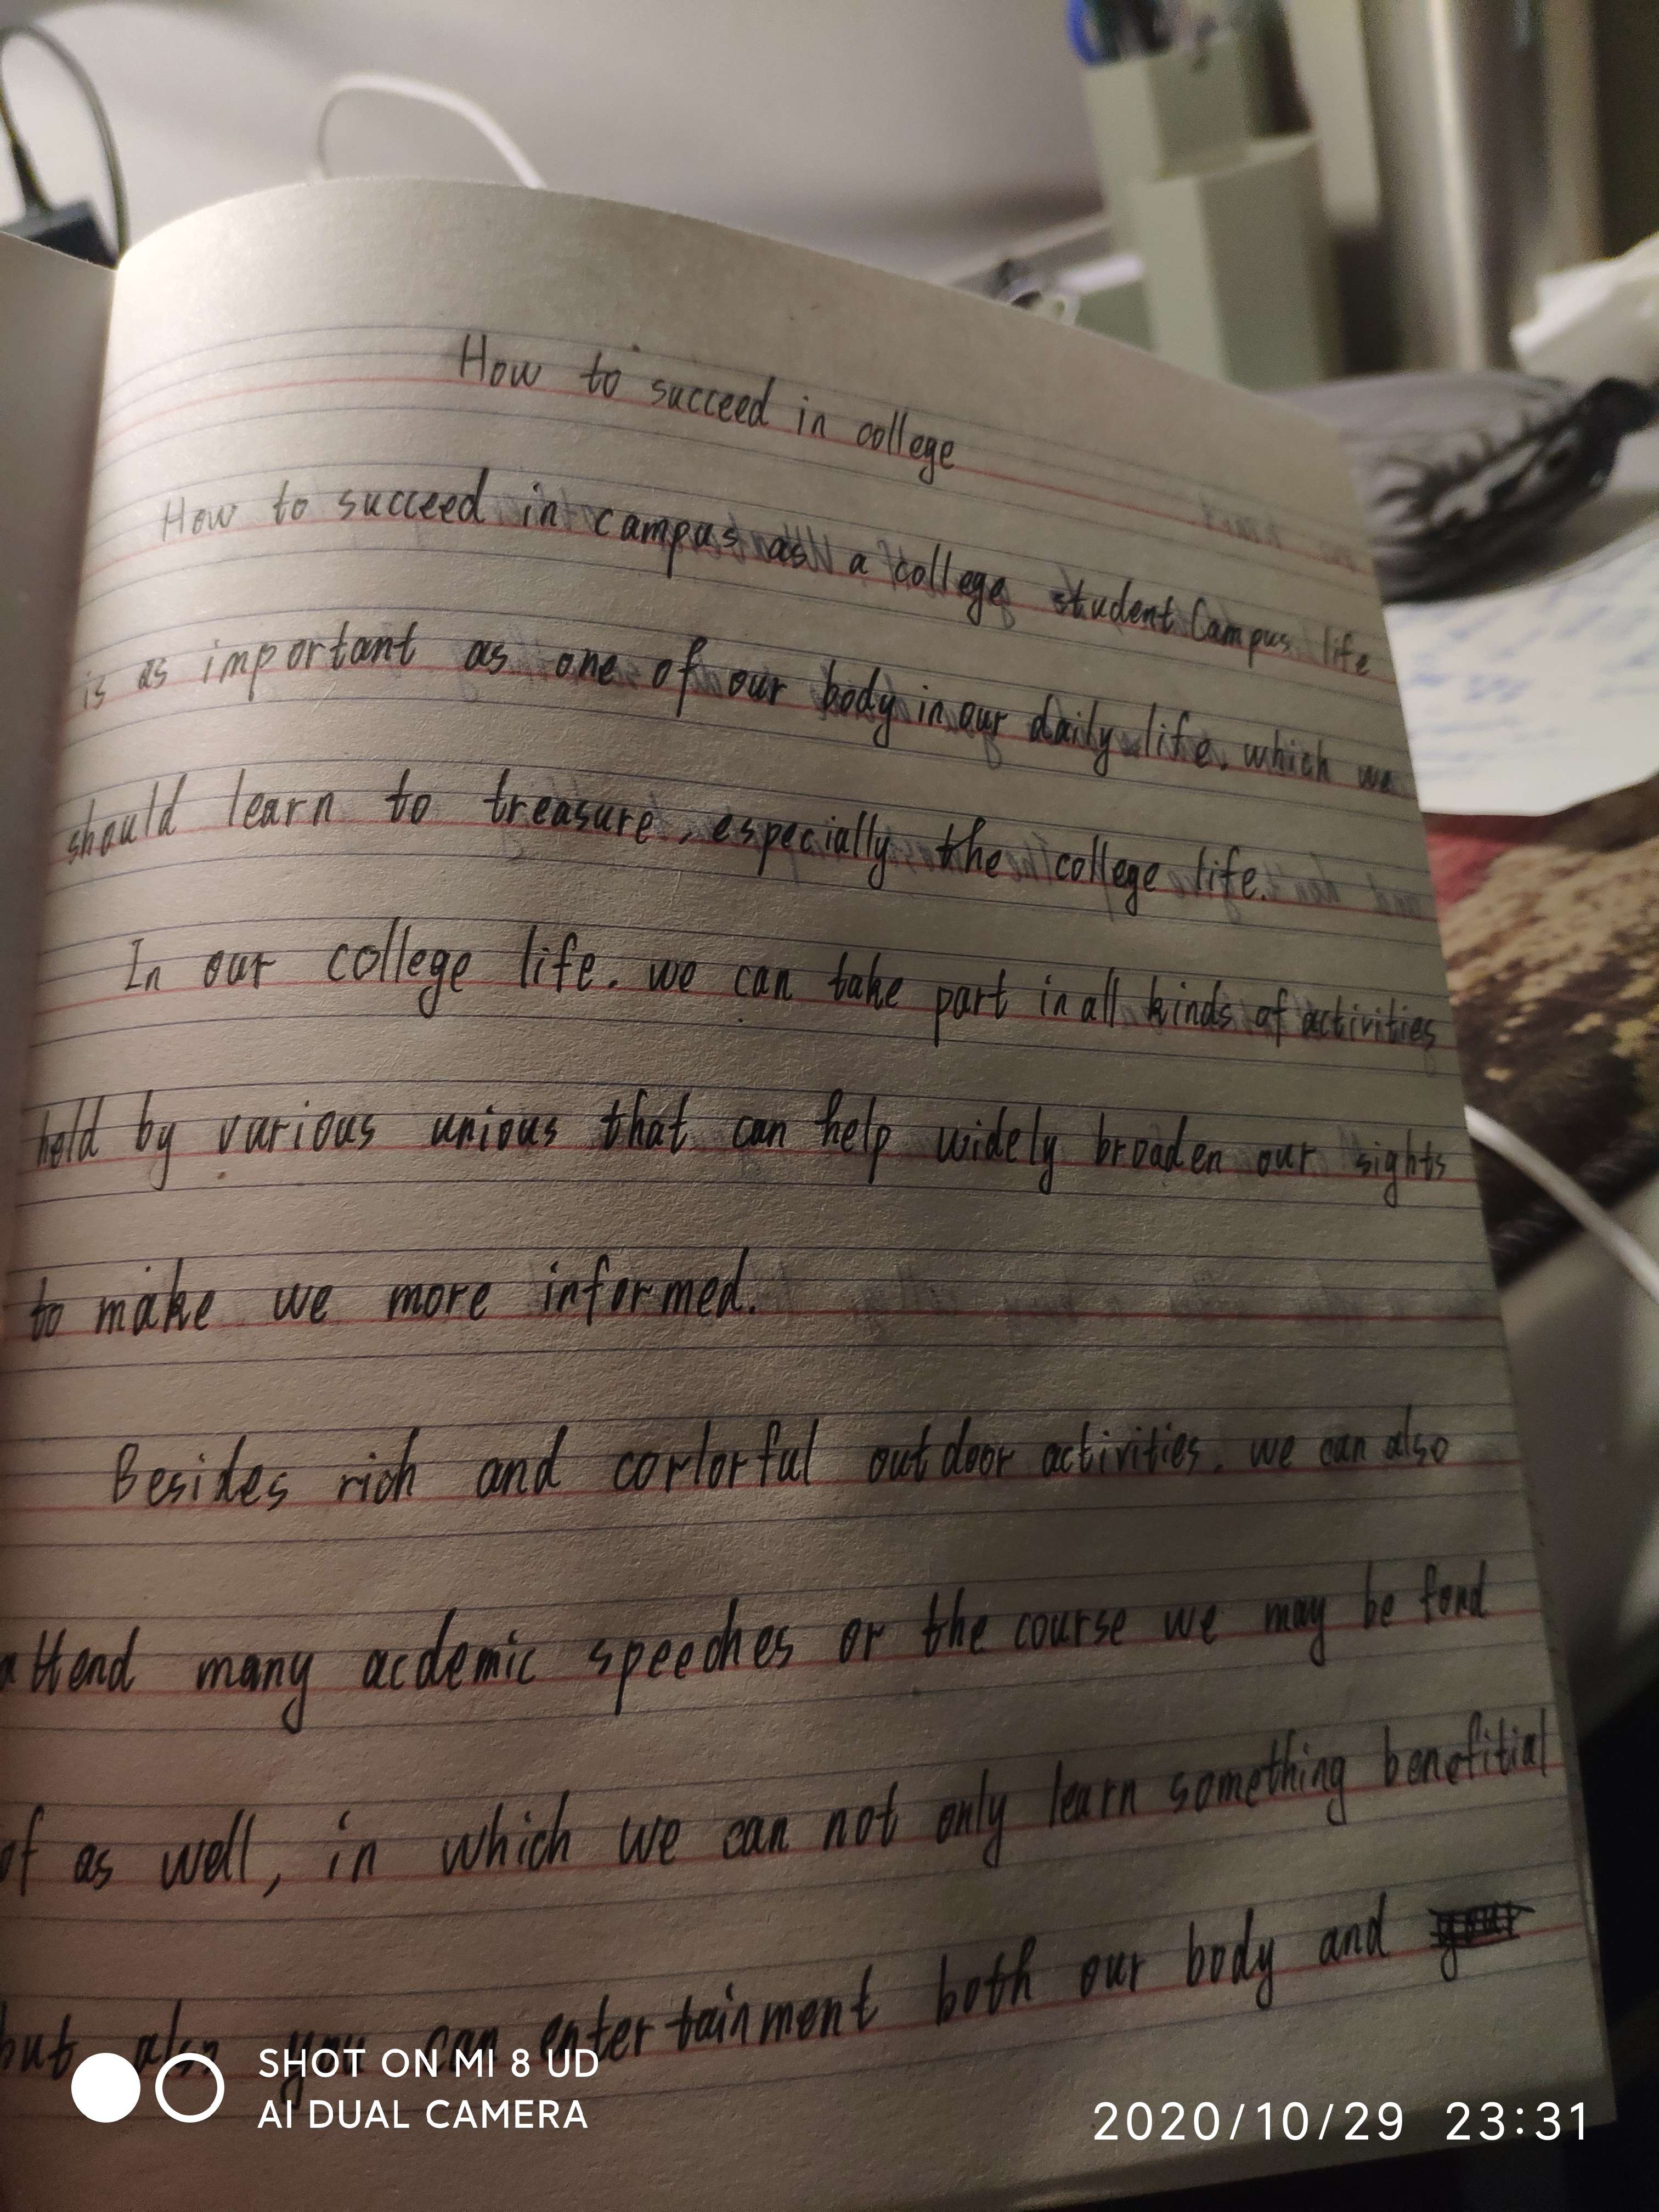 How to succeed in college
How to succeed in campus as a college student. Campus life
is as important as one of our body in our daily life. which we
should learn to treasure, especially the college life.
In our college life. we can take part in all kinds of activities
held by various unious that can help widely broaden our sights
to make we more informed.
Besides rich and corlorful outdoor activities. we can also
attend many acdemic speeches or the course we may be fond
of as well, in which we can not only learn something benefitial
but also you can entertainment both our body and
SHOT ON MI 8 UD
AI DUAL CAMERA
2020/10/29 23:31